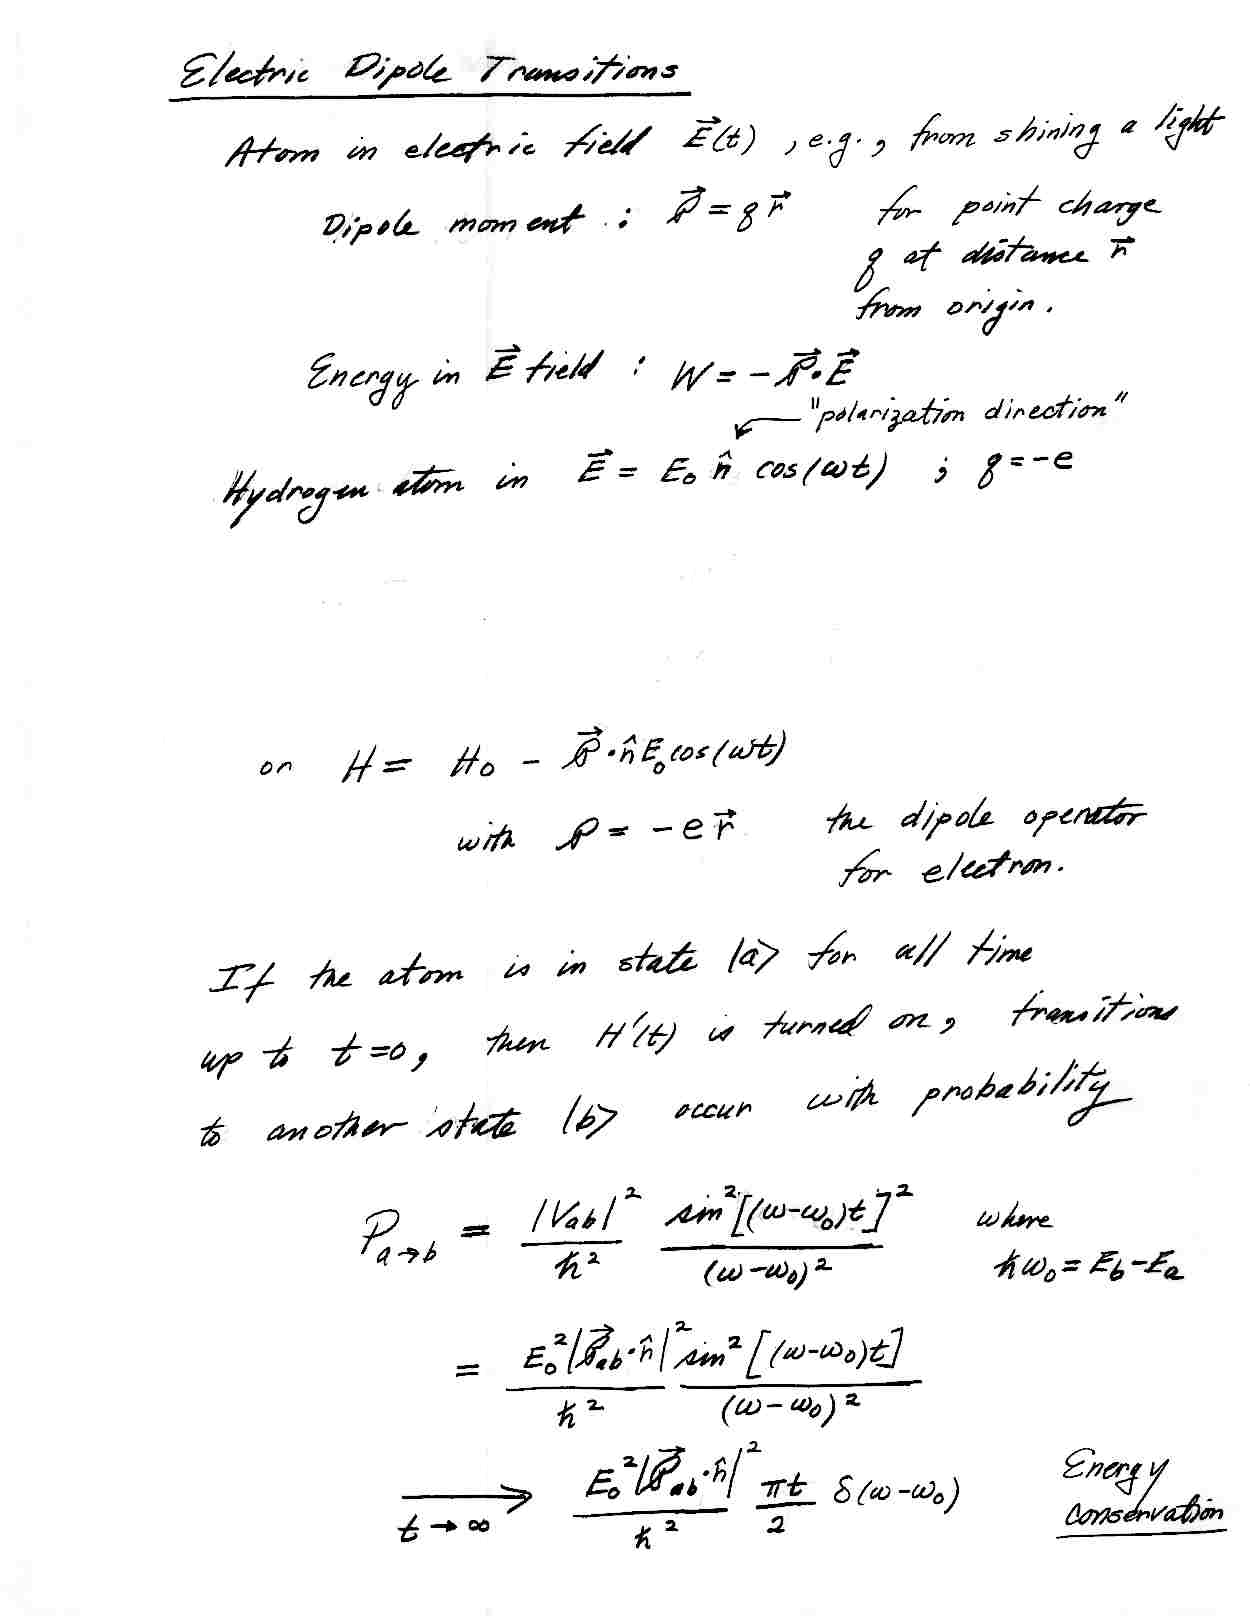 Electric Dipole Transitions
Atom in electric field E⃗(t), e.g., from shining a light
Dipole moment : 𝒫⃗ = q r⃗ for point charge
q at distance r⃗
from origin.
Energy in E⃗ field : W = - 𝒫⃗·E⃗
"polarization direction"
Hydrogen atom in E⃗ = E₀ n̂ cos(ωt) ; q = -e
or H = H₀ - 𝒫⃗·n̂ E₀ cos(ωt)
with 𝒫 = -e r⃗ the dipole operator
for electron.
If the atom is in state |a> for all time
up to t=0, then H'(t) is turned on, transitions
to another state |b> occur with probability
P_{a→b} = |V_{ab}|²/ħ² sin²[(ω-ω₀)t]²/(ω-ω₀)² where
ħω₀ = E_b - E_a
= E₀²|𝒫⃗_{ab}·n̂|²/ħ² sin²[(ω-ω₀)t]/(ω-ω₀)²
⟶ t→∞ E₀²|𝒫⃗_{ab}·n̂|²/ħ² πt/2 δ(ω-ω₀) Energy
conservation